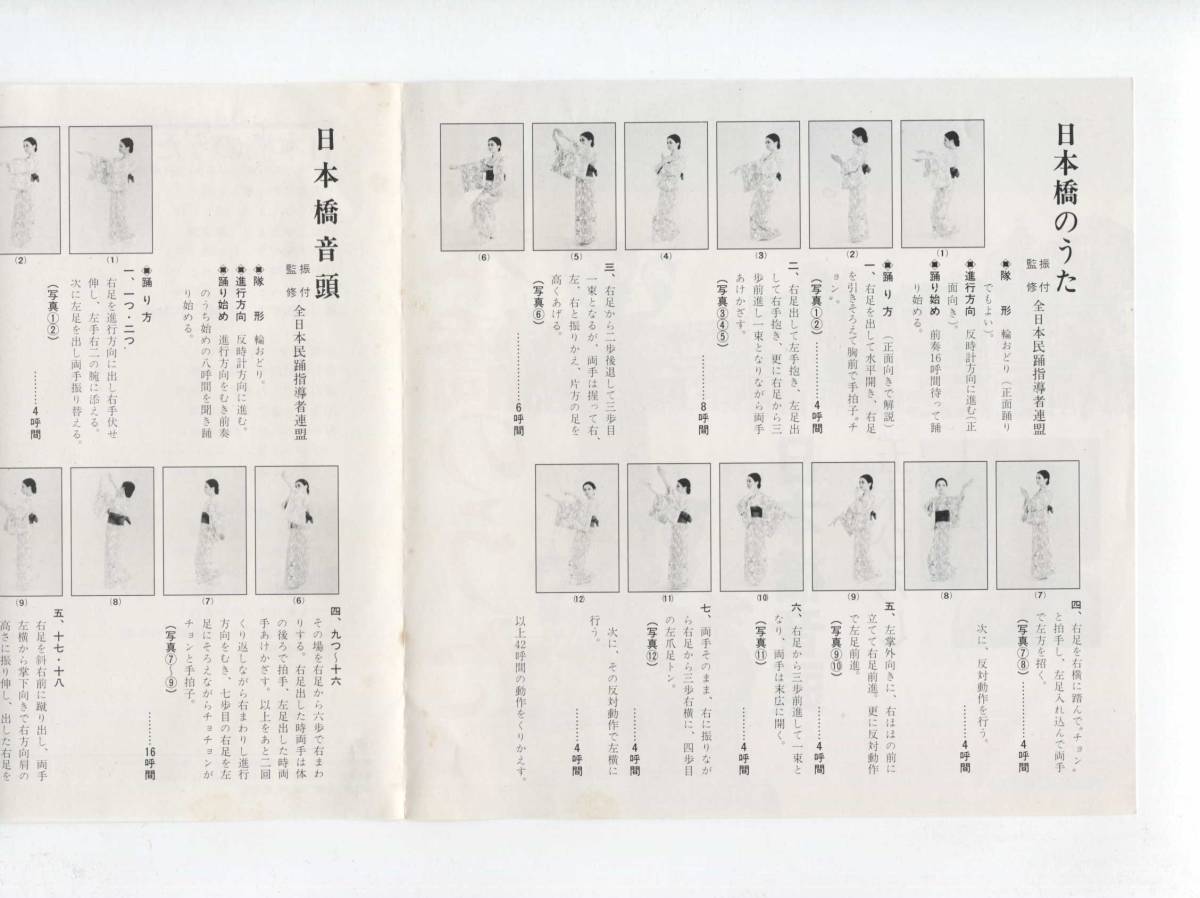 日本橋のうた
振付
監修
全日本民踊指導者連盟
■隊　形　輪おどり（正面踊り
でもよい）。
■進行方向　反時計方向に進む（正
面向き）。
■踊り始め　前奏16呼間待って踊
り始める。
■踊り方　（正面向きで解説）
一、右足を出して水平開き、右足
を引きそろえて胸前で手拍子。チ
ョン。
（写真①②）
………4呼間
二、右足出して左手抱き、左足出
して右手抱き、更に右足から三
歩前進し一束となりながら両手
あけかざす。
（写真③④⑤）
………8呼間
三、右足から二歩後退して三歩目
一束となるが、両手は握って右、
左、右と振りかえ、片方の足を
高くあげる。
（写真⑥）
………6呼間
(1)
(2)
(3)
(4)
(5)
(6)
四、右足を右横に踏んで〝チョン〟
と拍手し、左足入れ込んで両手
で左方を招く。
（写真⑦⑧）
………4呼間
次に、反対動作を行う。
………4呼間
五、左掌外向きに、右はほの前に
立てて右足前進。更に反対動作
で左足前進。
（写真⑨⑩）
………4呼間
六、右足から三歩前進して一束と
なり、両手は末広に開く。
（写真⑪）
………4呼間
七、両手そのまま、右に振りなが
ら右足から三歩右横に、四歩目
の左爪足トン。
（写真⑫）
………4呼間
次に、その反対動作で左横に
行う。
………4呼間
以上42呼間の動作をくりかえす。
(7)
(8)
(9)
(10)
(11)
(12)
日本橋音頭
振付
監修
全日本民踊指導者連盟
■隊　形　輪おどり。
■進行方向　反時計方向に進む。
■踊り始め　進行方向をむき前奏
のうち始めの八呼間を聞き踊
り始める。
■踊り方
一、一つ・二つ
右足を進行方向に出し右手伏せ
伸し、左手右二の腕に添える。
次に左足を出し両手振り替える。
（写真①②）
………4呼間
(1)
(2)
四、九つ〜十六
その場を右足から六歩で右まわ
りする。右足出した時両手は体
の後ろで拍手、左足出した時両
手あけかざす。以上をあと二回
くり返しながら右まわりし進行
方向をむき、七歩目の右足を左
足にそろえながらチョチョンが
チョンと手拍子。
（写真⑦〜⑨）
………16呼間
五、十七・十八
右足を斜右前に蹴り出し、両手
左横から掌下向きで右方向肩の
高さに振り伸し、出した右足を
(6)
(7)
(8)
(9)